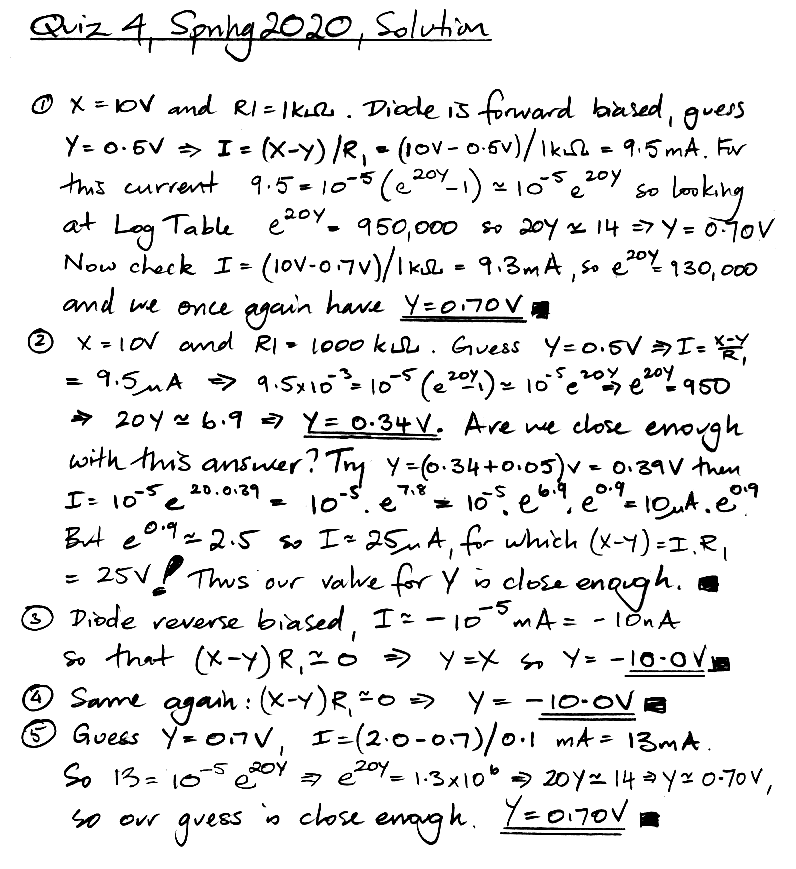 Quiz 4, Spring 2020, Solution
① X = 10V and R1 = 1kΩ. Diode is forward biased, guess
Y = 0.5V ⇒ I = (X-Y)/R₁ = (10V - 0.5V)/1kΩ = 9.5mA. For
this current 9.5 = 10⁻⁵(e²⁰ʸ-1) ≃ 10⁻⁵e²⁰ʸ so looking
at Log Table e²⁰ʸ = 950,000 so 20Y ≃ 14 ⇒ Y = 0.70V
Now check I = (10V-0.7V)/1kΩ = 9.3mA, so e²⁰ʸ = 930,000
and we once again have Y = 0.70V ■
② X = 10V and R1 = 1000 kΩ. Guess Y = 0.5V ⇒ I = (X-Y)/R₁
= 9.5μA ⇒ 9.5x10⁻³ = 10⁻⁵(e²⁰ʸ-1) ≃ 10⁻⁵e²⁰ʸ ⇒ e²⁰ʸ = 950
⇒ 20Y ≃ 6.9 ⇒ Y = 0.34V. Are we close enough
with this answer? Try Y = (0.34+0.05)V = 0.39V then
I = 10⁻⁵ e^20.0.39 = 10⁻⁵. e^7.8 = 10⁻⁵. e^6.9. e^0.9 = 10μA. e^0.9
But e^0.9 ≃ 2.5 so I ≃ 25μA, for which (X-Y) = I.R₁
= 25V! Thus our value for Y is close enough. ■
③ Diode reverse biased, I ≃ -10⁻⁵mA = -10nA
so that (X-Y)R₁ ≃ 0 ⇒ Y = X so Y = -10.0V ■
④ Same again: (X-Y)R₁ ≃ 0 ⇒ Y = -10.0V ■
⑤ Guess Y = 0.7V, I = (2.0-0.7)/0.1 mA = 13mA.
So 13 = 10⁻⁵ e²⁰ʸ ⇒ e²⁰ʸ = 1.3x10⁶ ⇒ 20Y ≃ 14 ⇒ Y ≃ 0.70V,
so our guess is close enough. Y = 0.70V ■